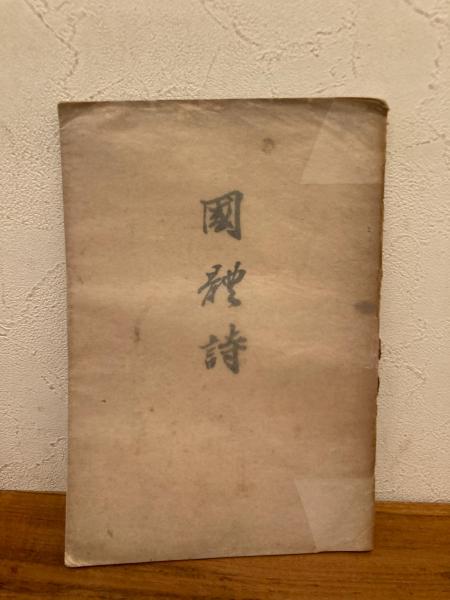 國體詩